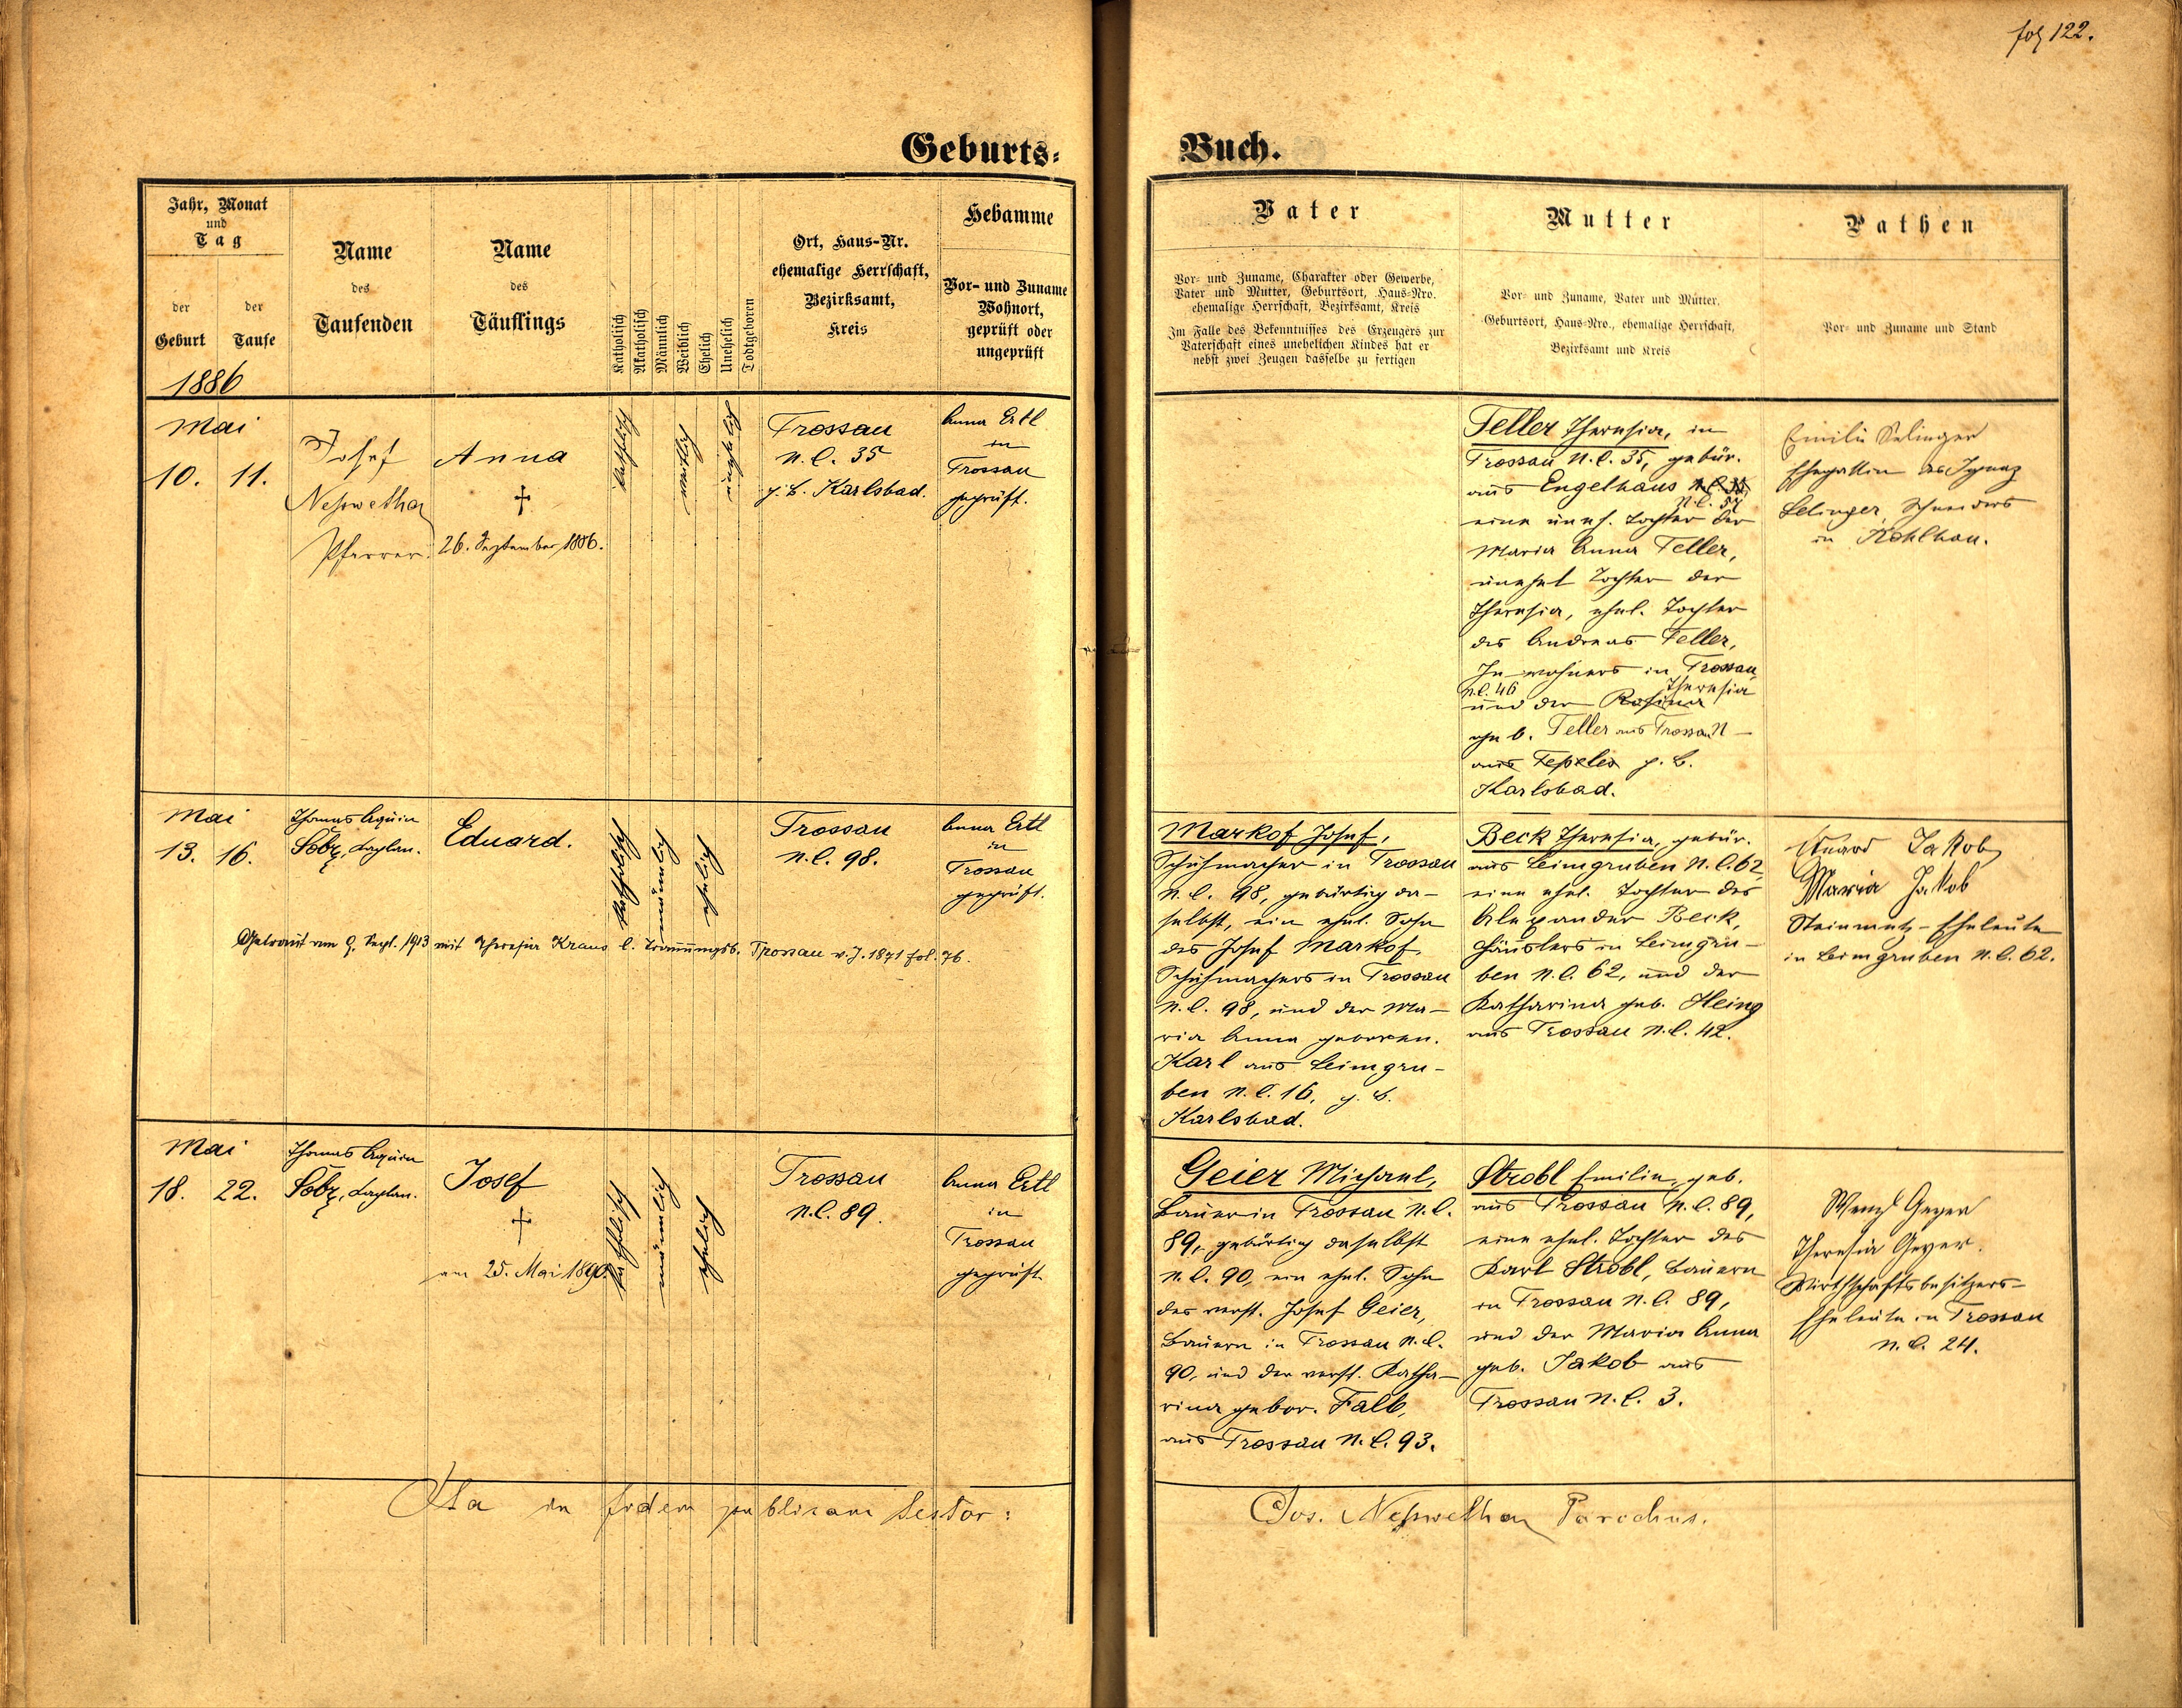 fol 122.
Geburts-
Buch.
Jahr, Monat
und
Tag
der
Geburt
der
Taufe
1886
Name
des
Taufenden
Name
des
Täuflings
Katholisch
Akatholisch
Männlich
Weiblich
Ehelich
Unehelich
Todtgeboren
Ort, Haus-Nr.
ehemalige Herrschaft,
Bezirksamt,
Kreis
Hebamme
Vor- und Zuname
Wohnort,
geprüft oder
ungeprüft
Vater
Vor- und Zuname, Charakter oder Gewerbe,
Vater und Mutter, Geburtsort, Haus-Nro.
ehemalige Herrschaft, Bezirksamt, Kreis
Im Falle des Bekenntnisses des Erzeugers zur
Vaterschaft eines unehelichen Kindes hat er
nebst zwei Zeugen dasselbe zu fertigen
Mutter
Vor- und Zuname, Vater und Mutter,
Geburtsort, Haus-Nro., ehemalige Herrschaft,
Bezirksamt und Kreis
Pathen
Vor- und Zuname und Stand
Mai
10. 11.
Josef
Neßwetha
Pfarrer.
Anna
†
26. September 1886.
katholisch
weiblich
unehelich
Trossau
N.C. 35
g. B. Karlsbad.
Anna Ertl
in
Trossau
geprüft.
Teller Theresia, in
Trossau N.C. 35, gebür.
aus Engelhaus
N.C. 54
eine uneh. Tochter der
Maria Anna Teller,
unehel Tochter der
Theresia, ehel. Tochter
des Andreas Teller,
Inwohners in Trossau
N.C. 46 Theresia
und der Rosina
geb. Teller aus Trossau N
aus Tepeles g. B.
Karlsbad.
Emilie Selinger
Ehegattin des Ignaz
Selinger, Schneiders
in Kohlhau.
Mai
13. 16.
Thomas Aquin
Söbz, Kaplan.
Eduard.
katholisch
männlich
ehelich
Trossau
N.C. 98.
Anna Ertl
in
Trossau
geprüft.
Getraut am 9. Sept. 1913 mit Theresia Kraus l. Trauungsb. Trossau v. J. 1871 fol. 76.
Markof Josef,
Schuhmacher in Trossau
N.C. 98, gebürtig da-
selbst, ein ehel. Sohn
des Josef Markof,
Schuhmachers in Trossau
N.C. 98, und der Ma-
ria Anna geboren.
Karl aus Leimgru-
ben N.C. 16, g. B.
Karlsbad.
Beck Theresia, gebür.
aus Leimgruben N.C. 62,
eine ehel. Tochter des
Alexander Beck,
Häuslers in Leimgru-
ben N.C. 62, und der
Katharina geb. Heing
aus Trossau N.C. 42.
Eduard Jakob
Maria Jakob
Steinmetz-Eheleute
in Leimgruben N.C. 62.
Mai
18. 22.
Thomas Aquin
Söbz, Kaplan.
Josef
†
am 25. Mai 1890.
katholisch
männlich
ehelich
Trossau
N.C. 89.
Anna Ertl
in
Trossau
geprüft
Geier Michael,
Bauer in Trossau N.C.
89, gebürtig daselbst
N.C. 90, ein ehel. Sohn
des verst. Josef Geier,
Bauern in Trossau N.C.
90, und der verst. Katha-
rina gebor. Falb,
aus Trossau N.C. 93.
Strobl Emilie, geb.
aus Trossau N.C. 89,
eine ehel. Tochter des
Karl Strobl, Bauern
in Trossau N.C. 89,
und der Maria Anna
geb. Jakob aus
Trossau N.C. 3.
Wenzl Geyer
Theresia Geyer.
Wirthschaftsbesitzers-
Eheleute in Trossau
N.C. 24.
Ita in fidem publicam testor:
Jos. Neßwetha Parochus.